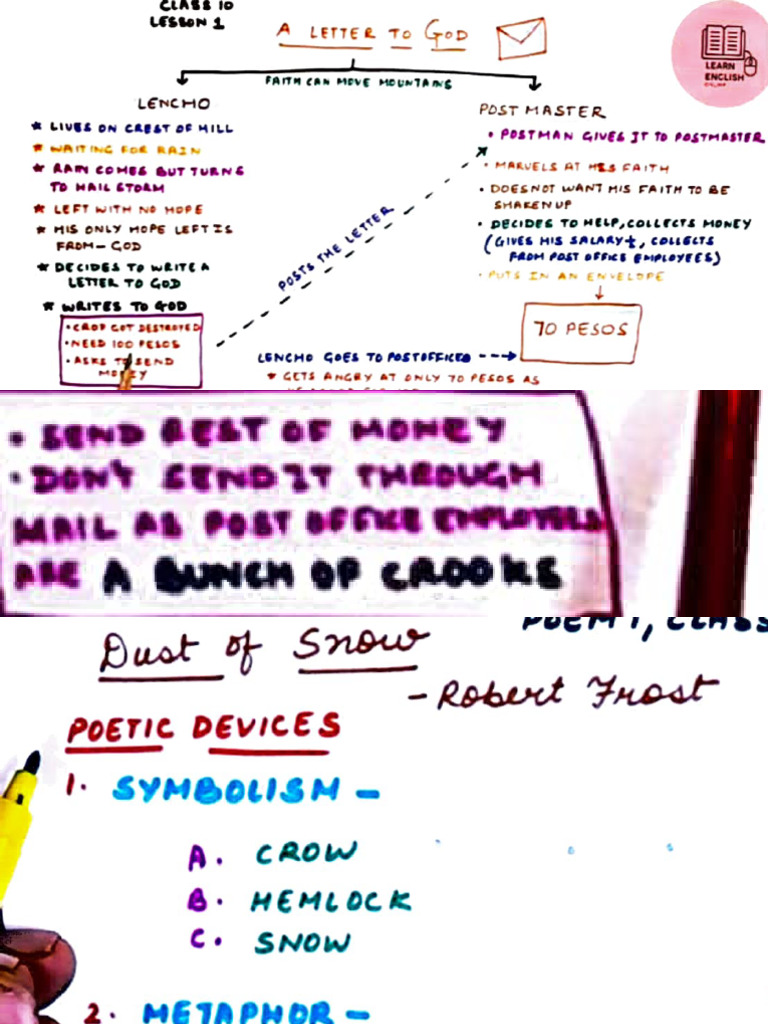 CLASS 10
LESSON 1
A LETTER TO GOD
LEARN
ENGLISH
FAITH CAN MOVE MOUNTAINS
LENCHO
★ LIVES ON CREST OF HILL
★ WAITING FOR RAIN
★ RAIN COMES BUT TURNS
TO HAIL STORM
★ LEFT WITH NO HOPE
★ HIS ONLY HOPE LEFT IS
FROM - GOD
★ DECIDES TO WRITE A
LETTER TO GOD
★ WRITES TO GOD
• CROP GOT DESTROYED
• NEED 100 PESOS
• ASKS TO SEND
MONEY
POSTS THE LETTER
POST MASTER
• POSTMAN GIVES IT TO POSTMASTER
• MARVELS AT HIS FAITH
• DOES NOT WANT HIS FAITH TO BE
SHAKEN UP
• DECIDES TO HELP, COLLECTS MONEY
(GIVES HIS SALARY, COLLECTS
FROM POST OFFICE EMPLOYEES)
• PUTS IN AN ENVELOPE
70 PESOS
LENCHO GOES TO POSTOFFICE
★ GETS ANGRY AT ONLY 70 PESOS AS
• SEND REST OF MONEY
• DON'T SEND IT THROUGH
MAIL AS POST OFFICE EMPLOYEES
ARE A BUNCH OF CROOKS
POEM 1, CLASS
Dust of Snow
- Robert Frost
POETIC DEVICES
1. SYMBOLISM -
A. CROW
B. HEMLOCK
C. SNOW
2. METAPHOR -